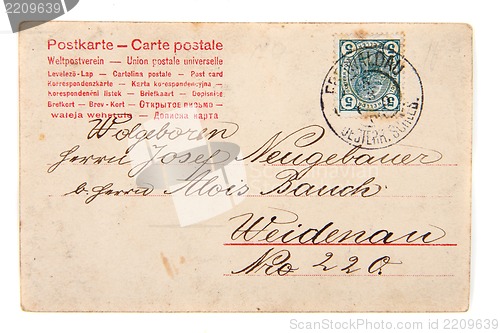 Postkarte — Carte postale
Weltpostverein — Union postale universelle
Levelezö-Lap — Cartolina postale — Post card
Korrespondenzkarte — Karta korespondencyjna
Korespondenční lístek — Briefkaart — Dopisnice
Brefkort — Brev-Kort — Открытое письмо
— Дописна карта
5 5
5 5
OESTERR. SCHLES.
Wolgeboren
Herrn Josef Neugebauer
b. Herrn Alois Bauch
Weidenau
Nro 220.
StockphotoImages
ID 2209639